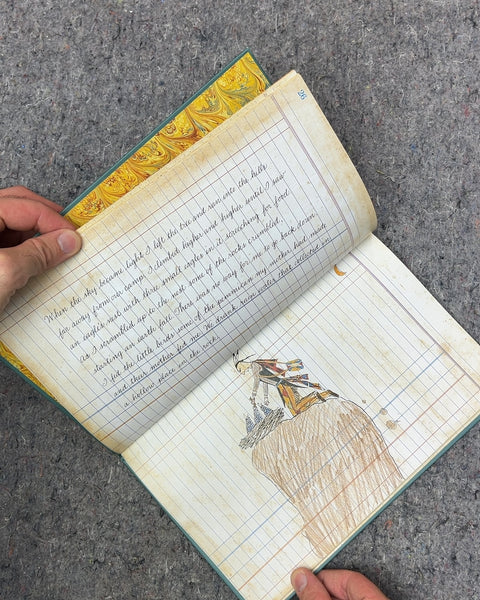 26
When the sky became light I left the tree and ran into the hills
far away from our camp. I climbed higher and higher until I saw
an eagles nest with three small eagles in it screeching for food.
As I scrambled up to the nest some of the rocks crumbled,
starting an earth fall. There was no way for me to go back down.
I fed the little birds some of the pemmican my mother had made
and their mother fed me. We drank rain water that collected in
a hollow place in the rock.